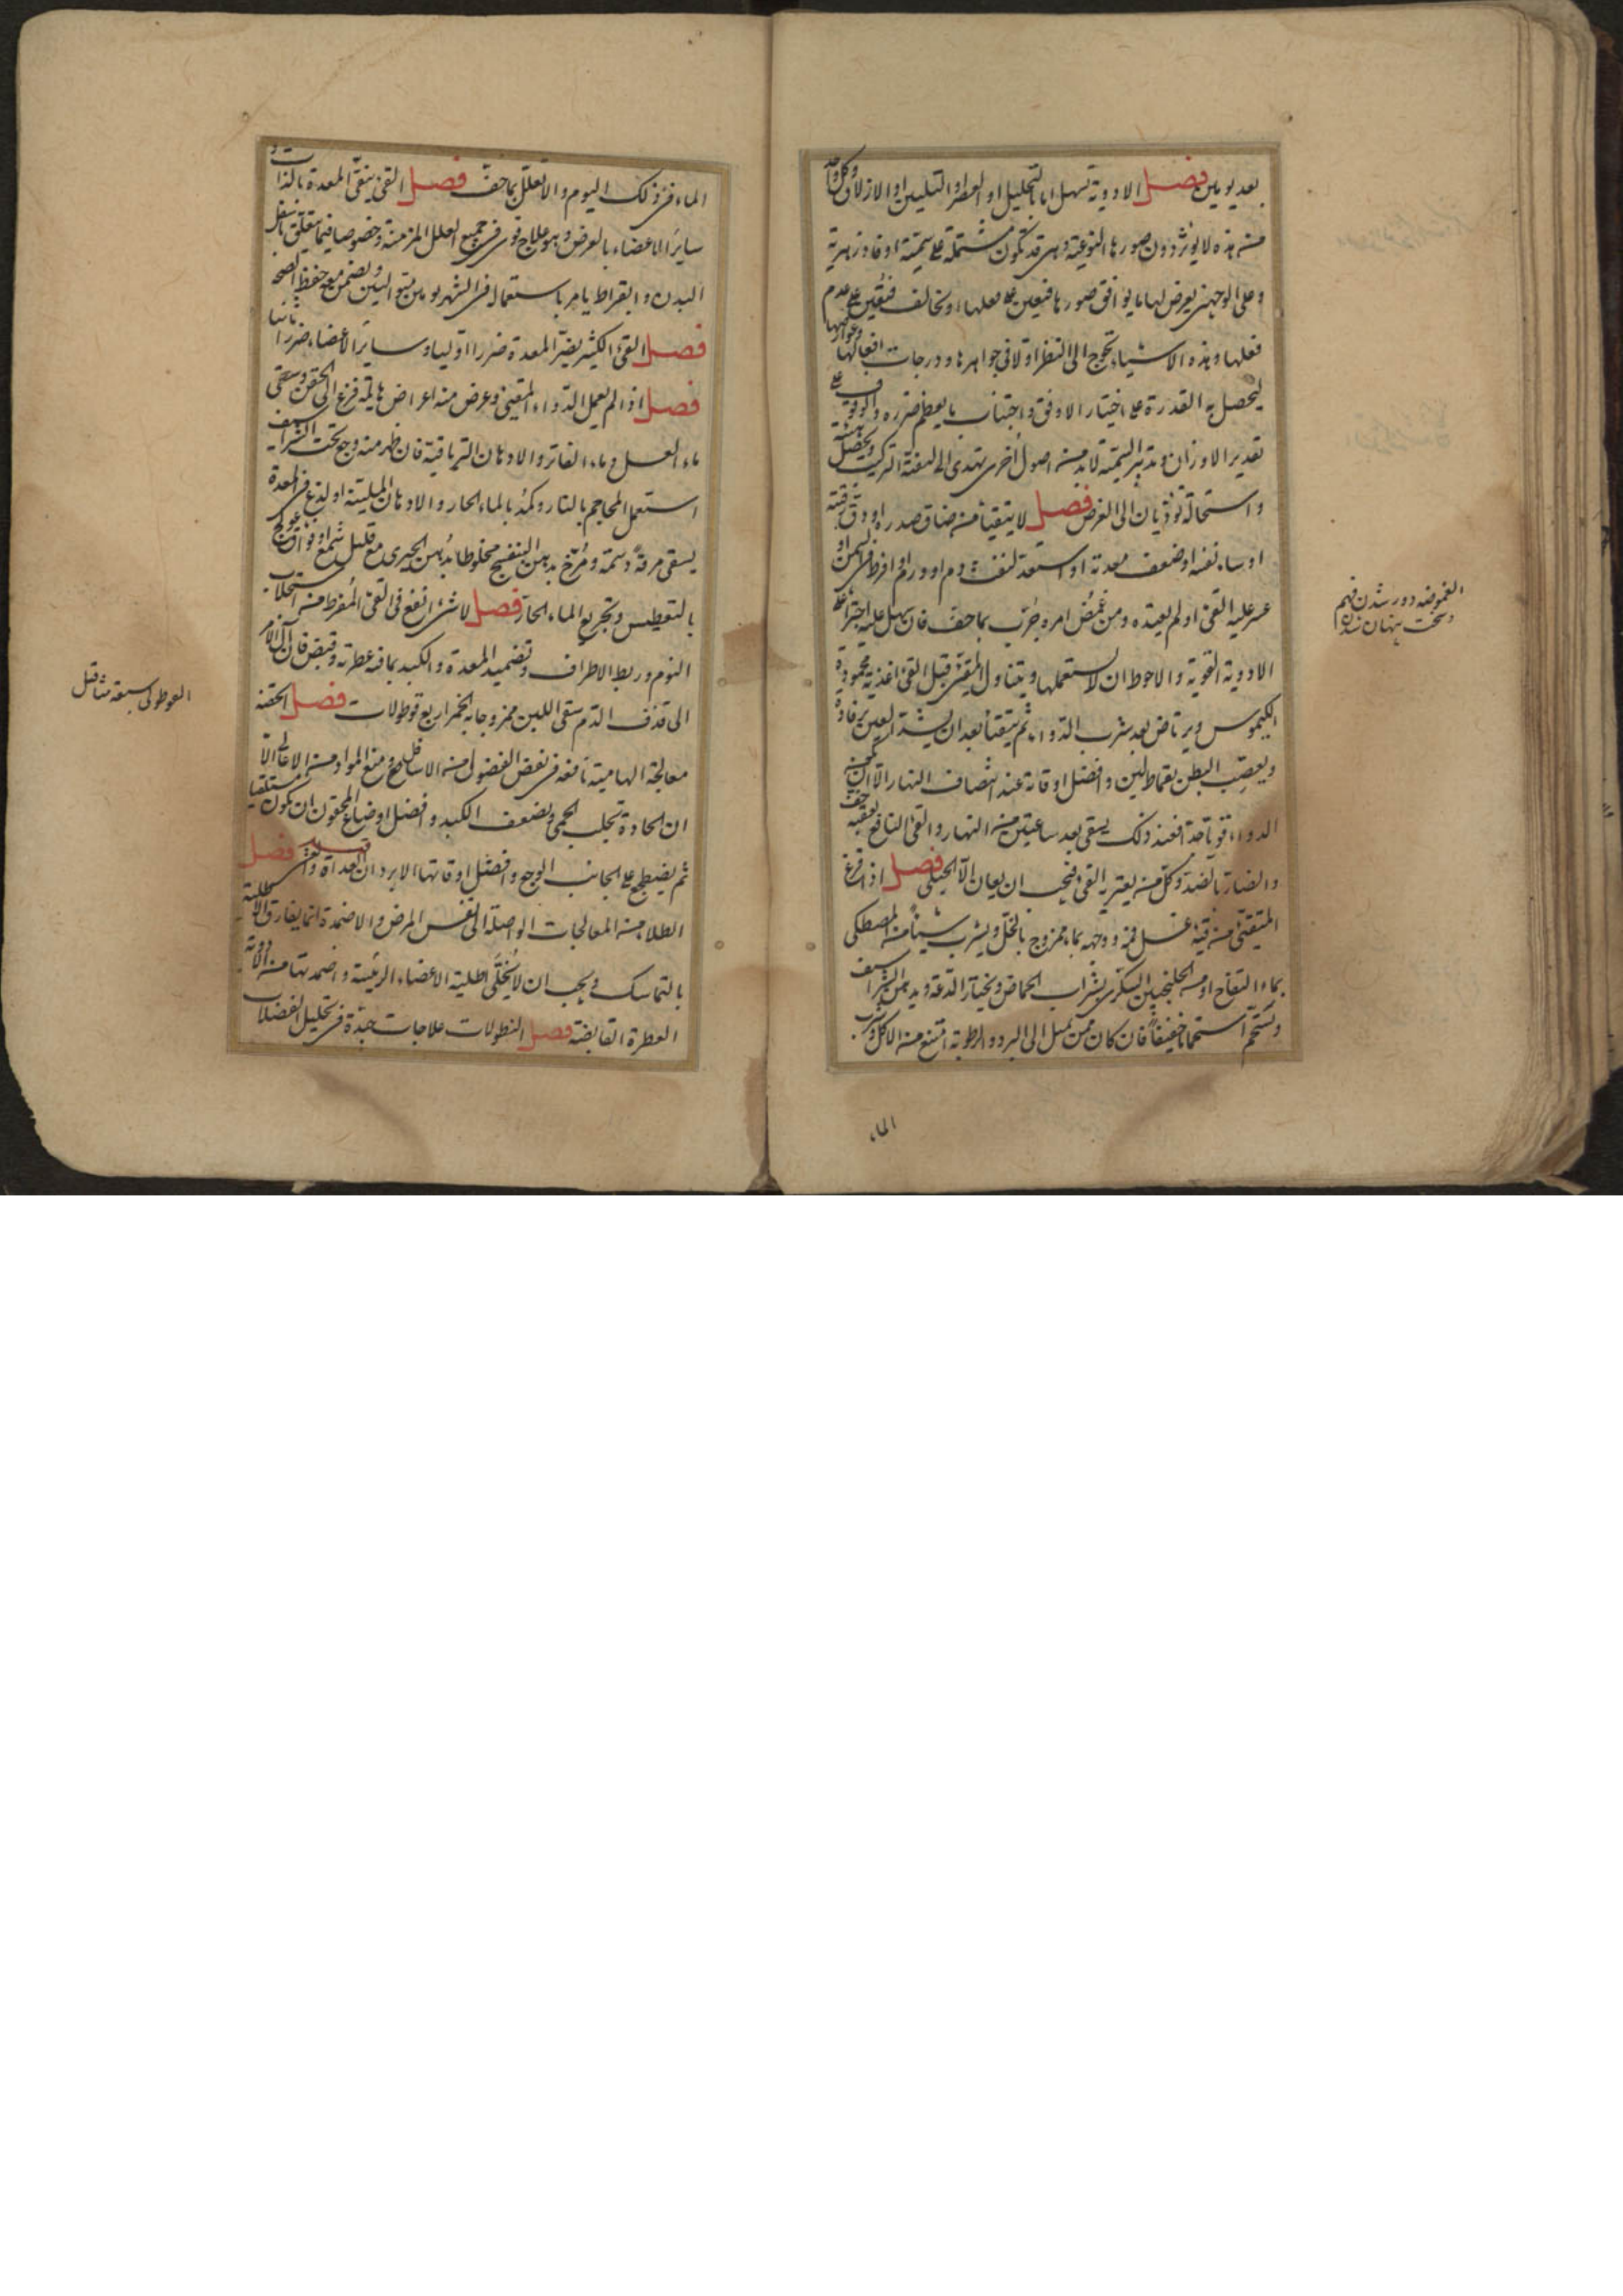 بعد يومين فصل الادوية تسهل اما بالتحليل او العصر او التليين او الازلاق وكل واحد
من هذه لا يؤثر دون صورها النوعية وهى قد تكون مشتملة على سمّية او فادزهرية
وعلى الوجهين يعرض لها ما يوافق صورها فتعين على فعلها او تخالف فتعين على عدم
فعلها وهذه الاشياء تحوج الى النظر اولا فى جواهرها ودرجات افعالها وعوارضها
ليحصل به القدرة على اختيار الاوفق واجتناب ما يعظم ضرره والوقوف على
تقدير الاوزان وتدبير التتمة لا بد من اصول اخرى تهدى الى كيفية التركيب ويحصل هيئة
واستحالة تؤديان الى الغرض فصل لا يتقيأ من ضاق صدره او دق رقبته
او ساء نفسه او ضعف معدته او استعد لنفث دم او ورام او افرط فى السمن او
عسر عليه القئ او لم يعتده ومن غمض امره جرّب بما خف فان سهل عليه اجترأ على
الادوية القوية والاحوط ان لا يستعملها ويتناول المتقيئ قبل القئ اغذية محمودة
الكيموس ويرتاض بعد شرب الدواء ثم يتقيأ بعد ان يشد العين برفادة
ويعصب البطن بقماط لين وافضل اوقاته عند انتصاف النهار الا ان يكون
الدواء قويا حدا فعند ذلك يسقى بعد ساعتين من النهار والقئ النافع يعقبه خف
والضار بالضد وكل من يعتريه القئ فيجب ان يعان الا الحبلى فصل اذا فرغ
المتقيئ من قيئه غسل فمه ووجهه بماء ممزوج بالخل ويشرب شيئا من المصطكى
بماء التفاح او من الجلنجبين السكرى بشراب الحماض ويختار الدعة ويدهن الشراسيف
ويستحم استحماما خفيفا فان كان ممن يميل الى البرد والرطوبة امتنع من الاكل وشرب
الماء
الغموضه دور شدن فهم
وسخت پنهان شدن
الماء فى ذلك اليوم والا تعلل بما خف فصل القئ ينقى المعدة بالذات و
ساير الاعضاء بالعرض وهو علاج قوى فى جميع العلل المزمنة وخصوصا فيما يتعلق باسفل
البدن وابقراط يامر باستعماله فى الشهر يومين متواليين ويضمن معه حفظ الصحة
فصل القئ الكثير يضر المعدة ضررا اوليا وساير الاعضاء ضررا ثانيا
فصل اذا لم يعمل الدواء المقيئ وعرض منه اعراض هايلة فزع الى الحقن وسقى
ماء العسل وماء الفاتر والادهان الترياقية فان ظهر منه وجع تحت الشراسيف
استعمل المحاجم بالنار وكمد بالماء الحار والادهان الملينة او لذع فى المعدة
يسقى مرقة دسمة ومُرّخ بدهن البنفسج مخلوطا بدهن الخيرى مع قليل شمع او فواق عولج
بالتعطيس وتجريع الماء الحار فصل لا شئ انفع فى القئ المفرط من استجلاب
النوم وربط الاطراف وتضميد المعدة والكبد بما فيه عطرية وقبض فان آل الامر
الى قذف الدم سقى اللبن ممزوجا به الخمر اربع قوطولات فصل الحقنة
معالجة الهامية نافعة فى نفض الفضول من الاسافل ومنع المواد من الاعالى الا
ان الحادة تجلب الحمى وتضعف الكبد وافضل اوضاع المحقون ان يكون مستلقيا
ثم يضطجع على الجانب الوجع وافضل اوقاتها الابردان الغداة والعشى فصل
الطلاء من المعالجات الواصلة الى نفس المرض والاضمدة انما يفارق الاطلية
بالتماسك ويجب ان لا يخلى اطلية الاعضاء الرئيسة واضمدتها من الادوية
العطرة القابضة فصل النطولات علاجات جيدة فى تحليل الفضلات
القوطولى سبعة مثاقيل